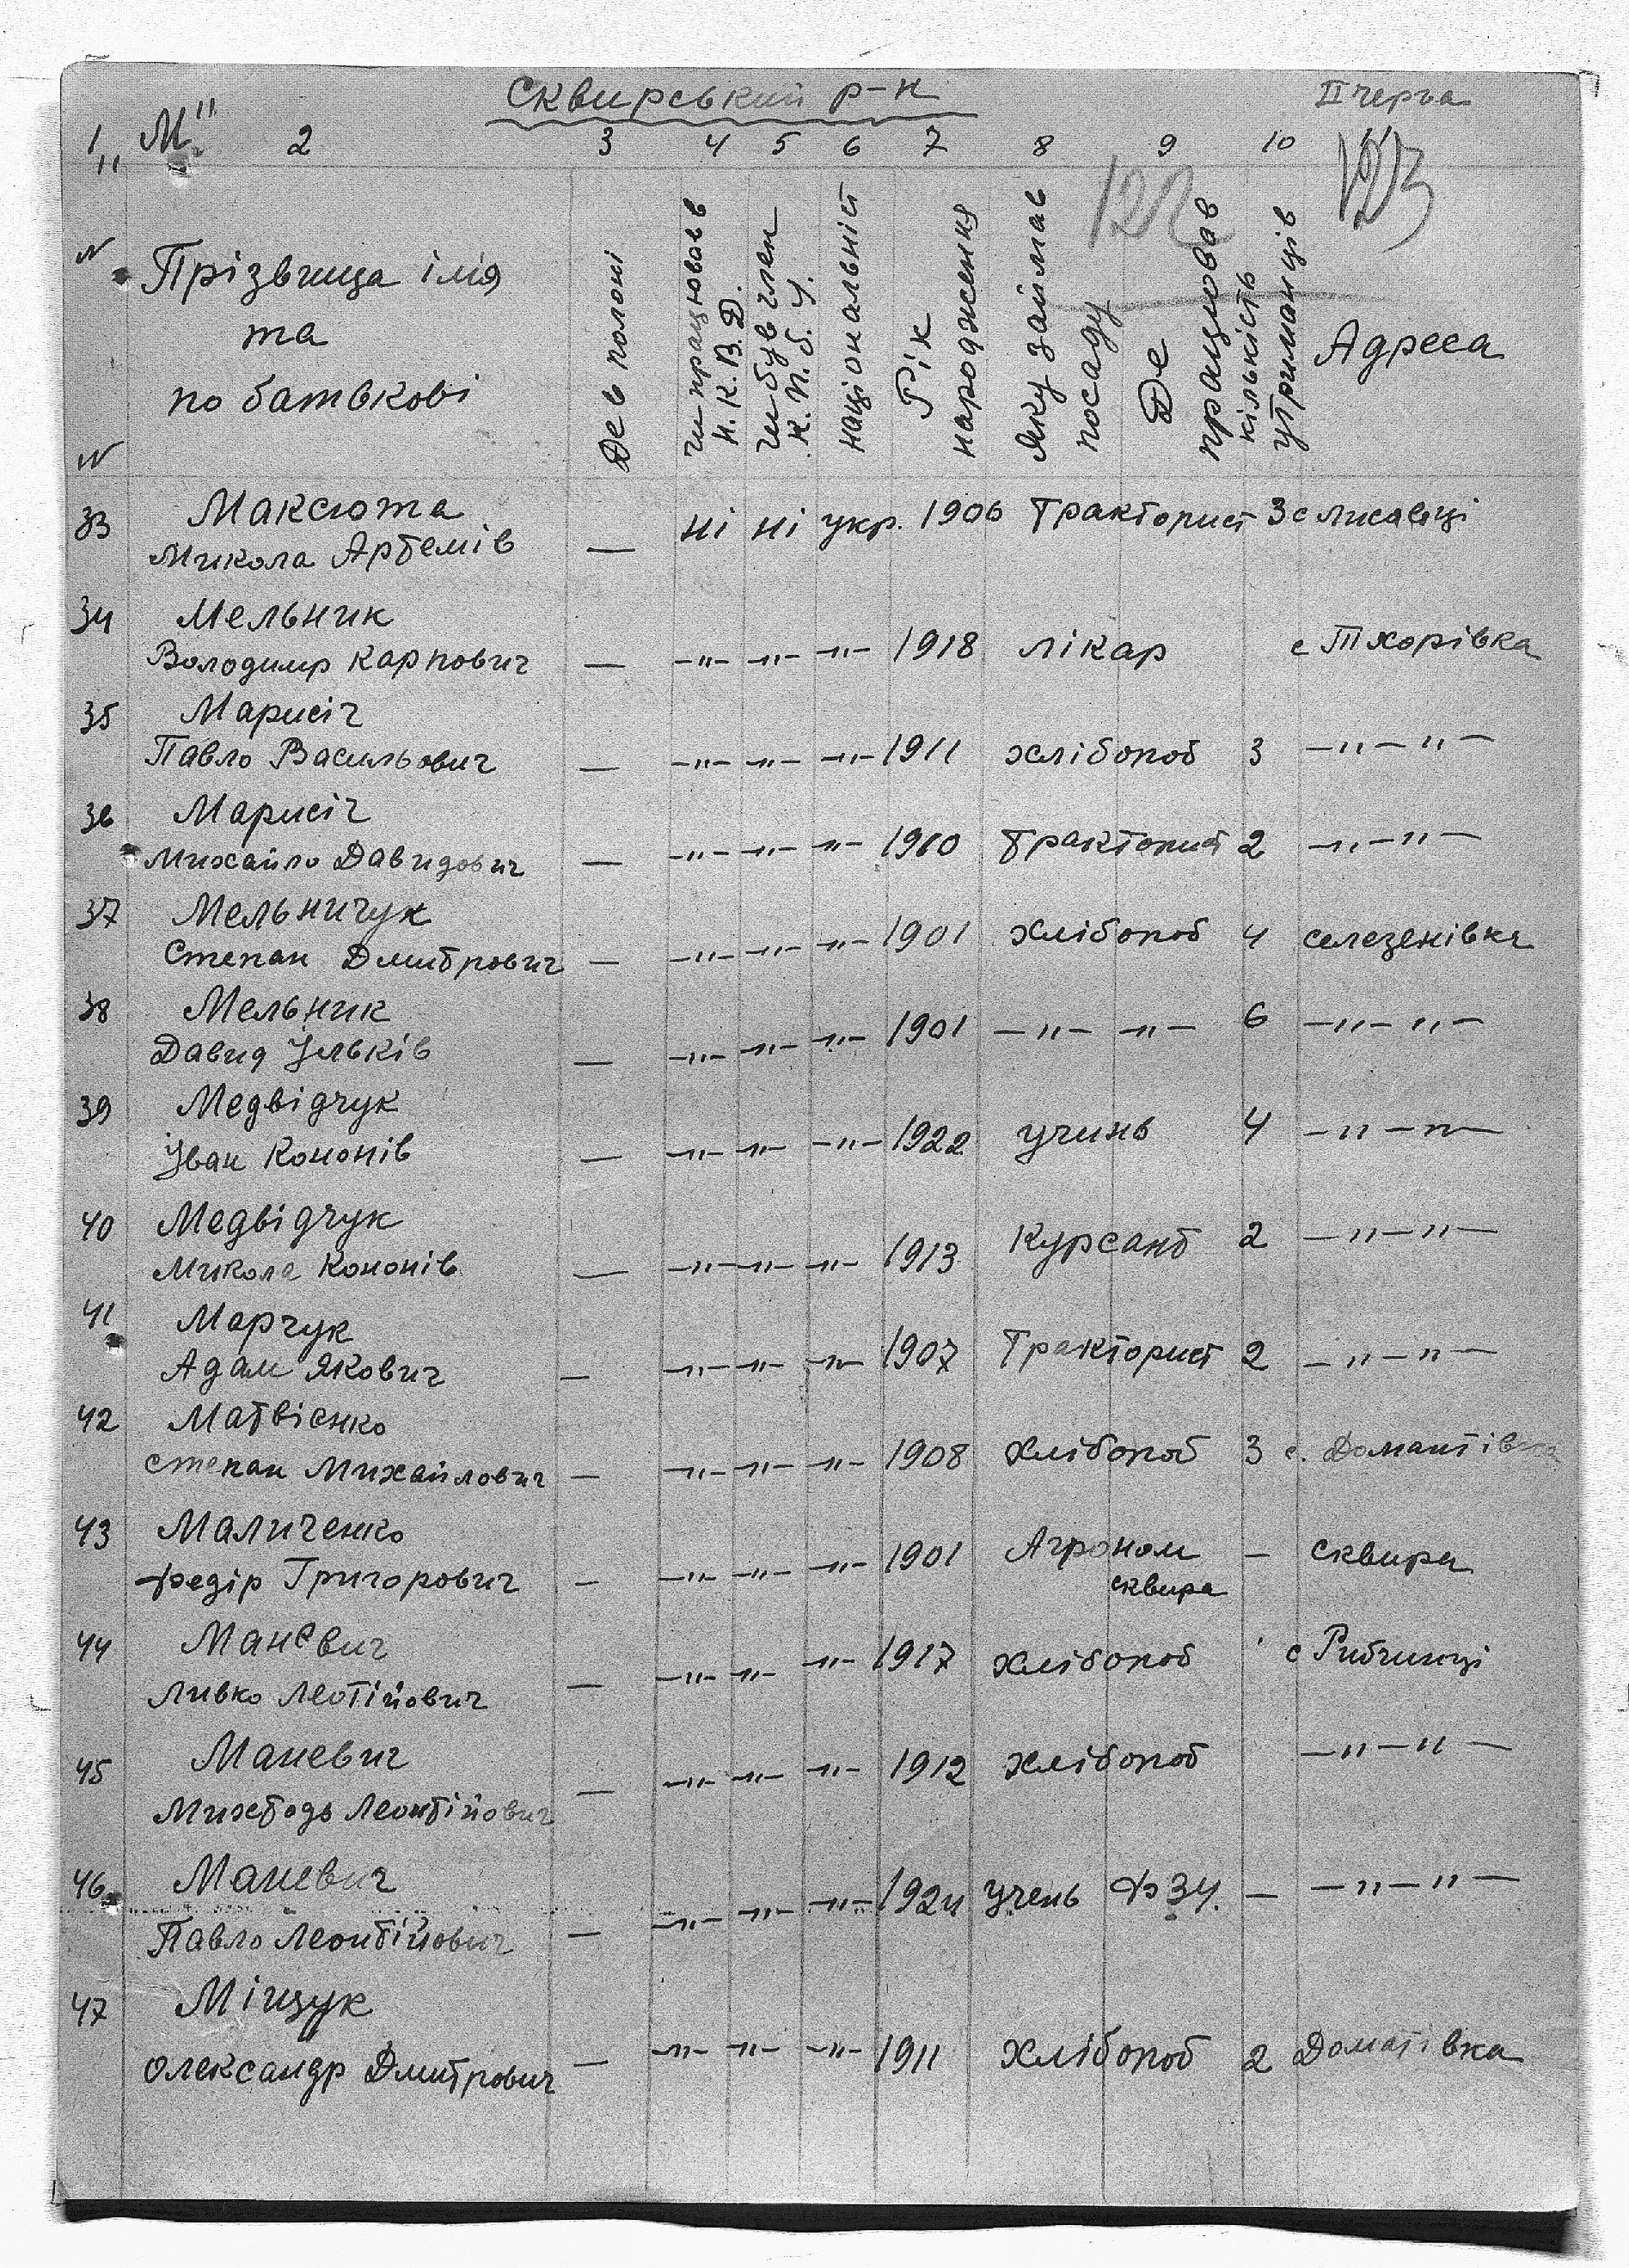 Сквирський р-н
II черга
1 "М" 2 3 4 5 6 7 8 9 10 11
122 123
N N
Прізвища імя
та
по батькові
Де в полоні
чи працював в
Н.К.В.Д.
чи був член
К.П.б.У.
національність
Рік
народження
Яку займав
посаду
Де
працював
кількість
утриманців
Адреса
33 Максюта
Микола Артемів — ні ні укр. 1906 Тракторист 3 с Лисавці
34 Мельник
Володимир Карпович — -"- -"- -"- 1918 лікар с Тхорівка
35 Марисіч
Павло Васильович — -"- -"- -"- 1911 хлібороб 3 -"-"-
36 Марисіч
Михайло Давидович — -"- -"- -"- 1910 тракторист 2 -"-"-
37 Мельничук
Степан Дмитрович — -"- -"- -"- 1901 хлібороб 4 селезенівка
38 Мельник
Давид Ільків — -"- -"- -"- 1901 -"- -"- 6 -"-"-
39 Медвідчук
Іван Кононів — -"- -"- -"- 1922 учинь 4 -"-"-
40 Медвідчук
Микола Кононів — -"- -"- -"- 1913 Курсант 2 -"-"-
41 Марчук
Адам Якович — -"- -"- -"- 1907 Тракторист 2 -"-"-
42 Матвієнко
Степан Михайлович — -"- -"- -"- 1908 хлібороб 3 с. Домантівка
43 Маличенко
Федір Григорович — -"- -"- -"- 1901 Агроном — сквира
сквира
44 Маневич
Ливко Леотійович — -"- -"- -"- 1917 хлібороб с Рибчинці
45 Маневич
Леонтійович — -"- -"- -"- 1912 хлібороб -"-"-
46 Маневич
Павло Леонтійович — -"- -"- -"- 1924 учень ФЗУ. — -"-"-
47 Міщук
Олександр Дмитрович — -"- -"- -"- 1911 хлібороб 2 Домантівка